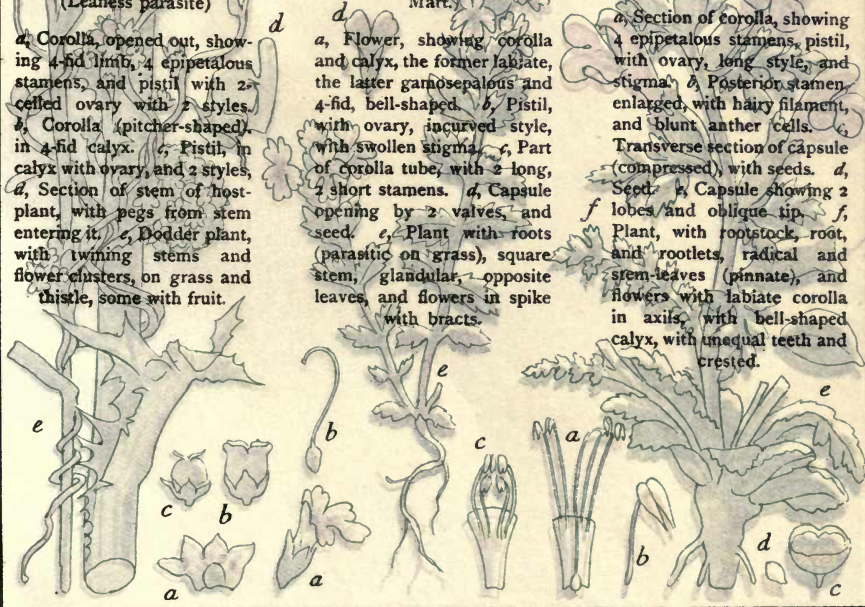 (Leafless parasite)
a, Corolla, opened out, show-
ing 4-fid limb, 4 epipetalous
stamens, and pistil with 2-
celled ovary with 2 styles.
b, Corolla (pitcher-shaped),
in 4-fid calyx. c, Pistil, in
calyx with ovary, and 2 styles,
d, Section of stem of host-
plant, with pegs from stem
entering it. e, Dodder plant,
with twining stems and
flower clusters, on grass and
thistle, some with fruit.
e
c
b
a
d
d
Mart.)
a, Flower, showing corolla
and calyx, the former labiate,
the latter gamosepalous and
4-fid, bell-shaped. b, Pistil,
with ovary, incurved style,
with swollen stigma. c, Part
of corolla tube, with 2 long,
2 short stamens. d, Capsule
opening by 2 valves, and
seed. e, Plant with roots
(parasitic on grass), square
stem, glandular, opposite
leaves, and flowers in spike
with bracts.
b
e
c
a
a, Section of corolla, showing
4 epipetalous stamens, pistil,
with ovary, long style, and
stigma. b, Posterior stamen,
enlarged, with hairy filament,
and blunt anther cells. c,
Transverse section of capsule
(compressed), with seeds. d,
Seed. e, Capsule showing 2
lobes and oblique tip. f,
Plant, with rootstock, root,
and rootlets, radical and
stem-leaves (pinnate), and
flowers with labiate corolla
in axils, with bell-shaped
calyx, with unequal teeth and
crested.
f
e
a
b
d
c